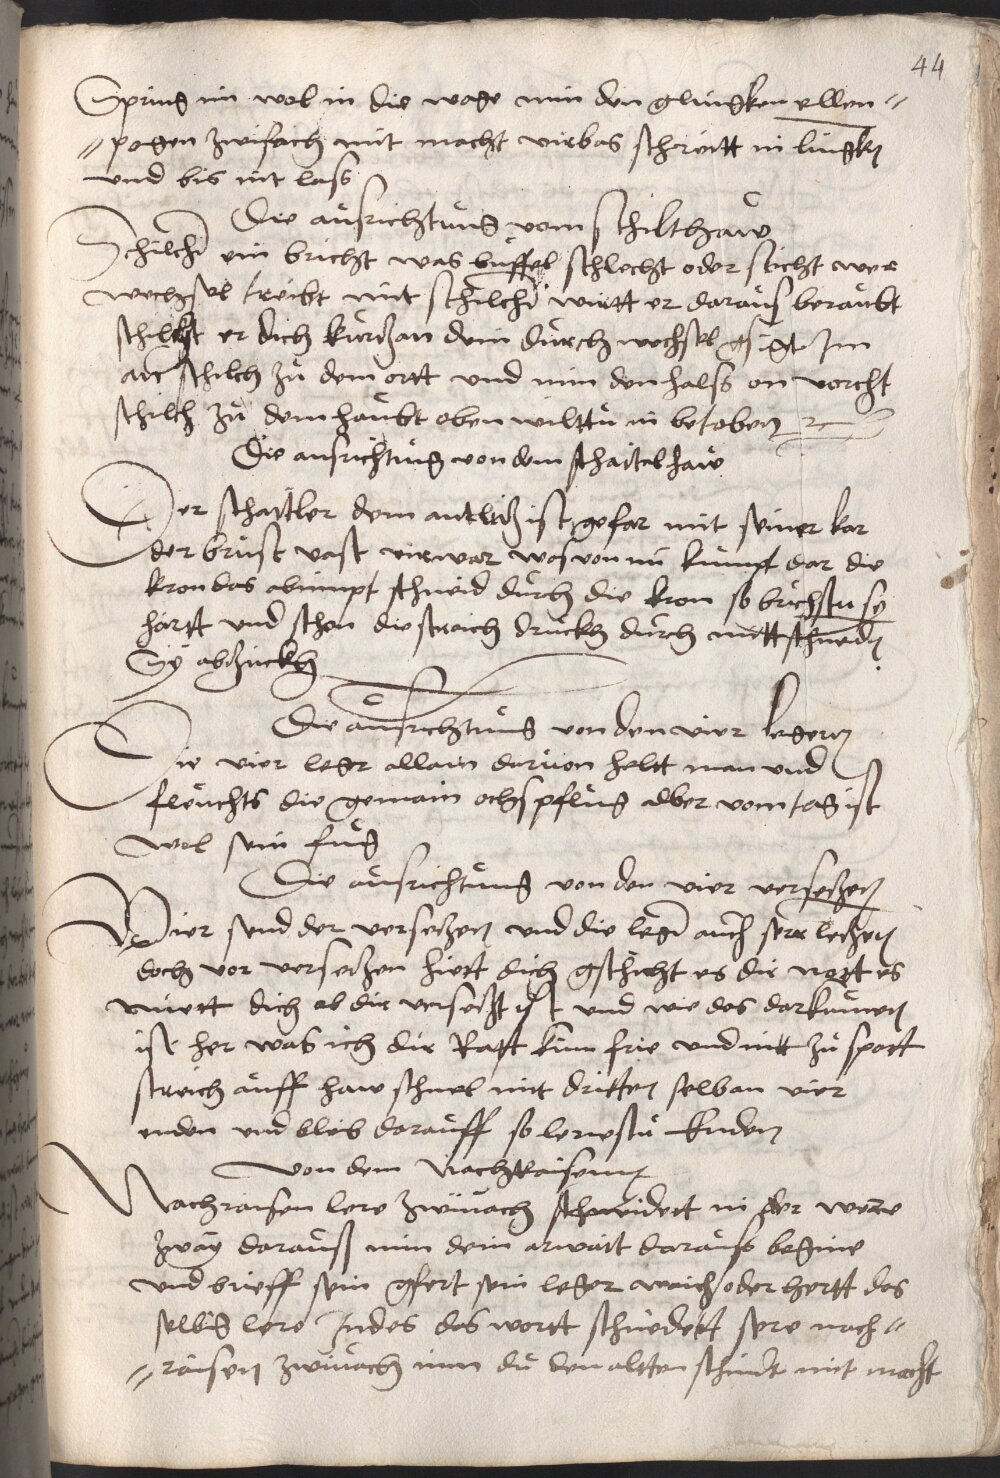 44
Spring im wol in die wage nim den glingken ellen=
=pogen zwifach mit macht virbas schreitt in lingkn
und bis nit lass
Die ausrichtung vom schilthaw
Schilcher ein bricht was buffel schlecht oder sticht wer
wechsel treibt mit schilcher wirtt er daraus beraubt
schilcht er dich kurtz an dem durch wechsel gsigt Im
an schilch zu dem ortt und nim den halss on vorcht
schilch zu dem haubt oben wilttu in betoben
Die ausrichtung von dem schaittelhaw
Der schaittler dem antlitz ist gefar mit seiner kar
der brust vast virwar was von im kumpt dar die
kron das abnimpt schneid durch die kron so brichstu sy
hartt und schon die streich druckh durch mitt schneden
Sy abzuckh
Die ausrichtung von den vier legern
Die vier leger allain darvon helt man und
fleuchts die gemain ochs pflug alber vom tag ist
wol sein fug
Die ausrichtung von den vier versetzen
Vier send der versetzen und die leger auch serr letzen
doch vor versetzen hiett dich gschicht es dir nott es
miett dich ob dir versetzt ist und wie das darkumen
ist her was ich dir Ratt kum frie und nitt zu spott
streich auff haw schnel mit dritten selb an vier
enden und bleib darauff so lernestu Enden
Von dem Nachraisenn
Nachraisen lere zwivach schneidett in der were
zway darauss nim dein arwait darauss begine
und brieff sein gfert sein leger waich oder hertt des
selbig lere Indes das wortt schneidett sere nach=
=raisen zwivach nim du den altten schnidt mit macht